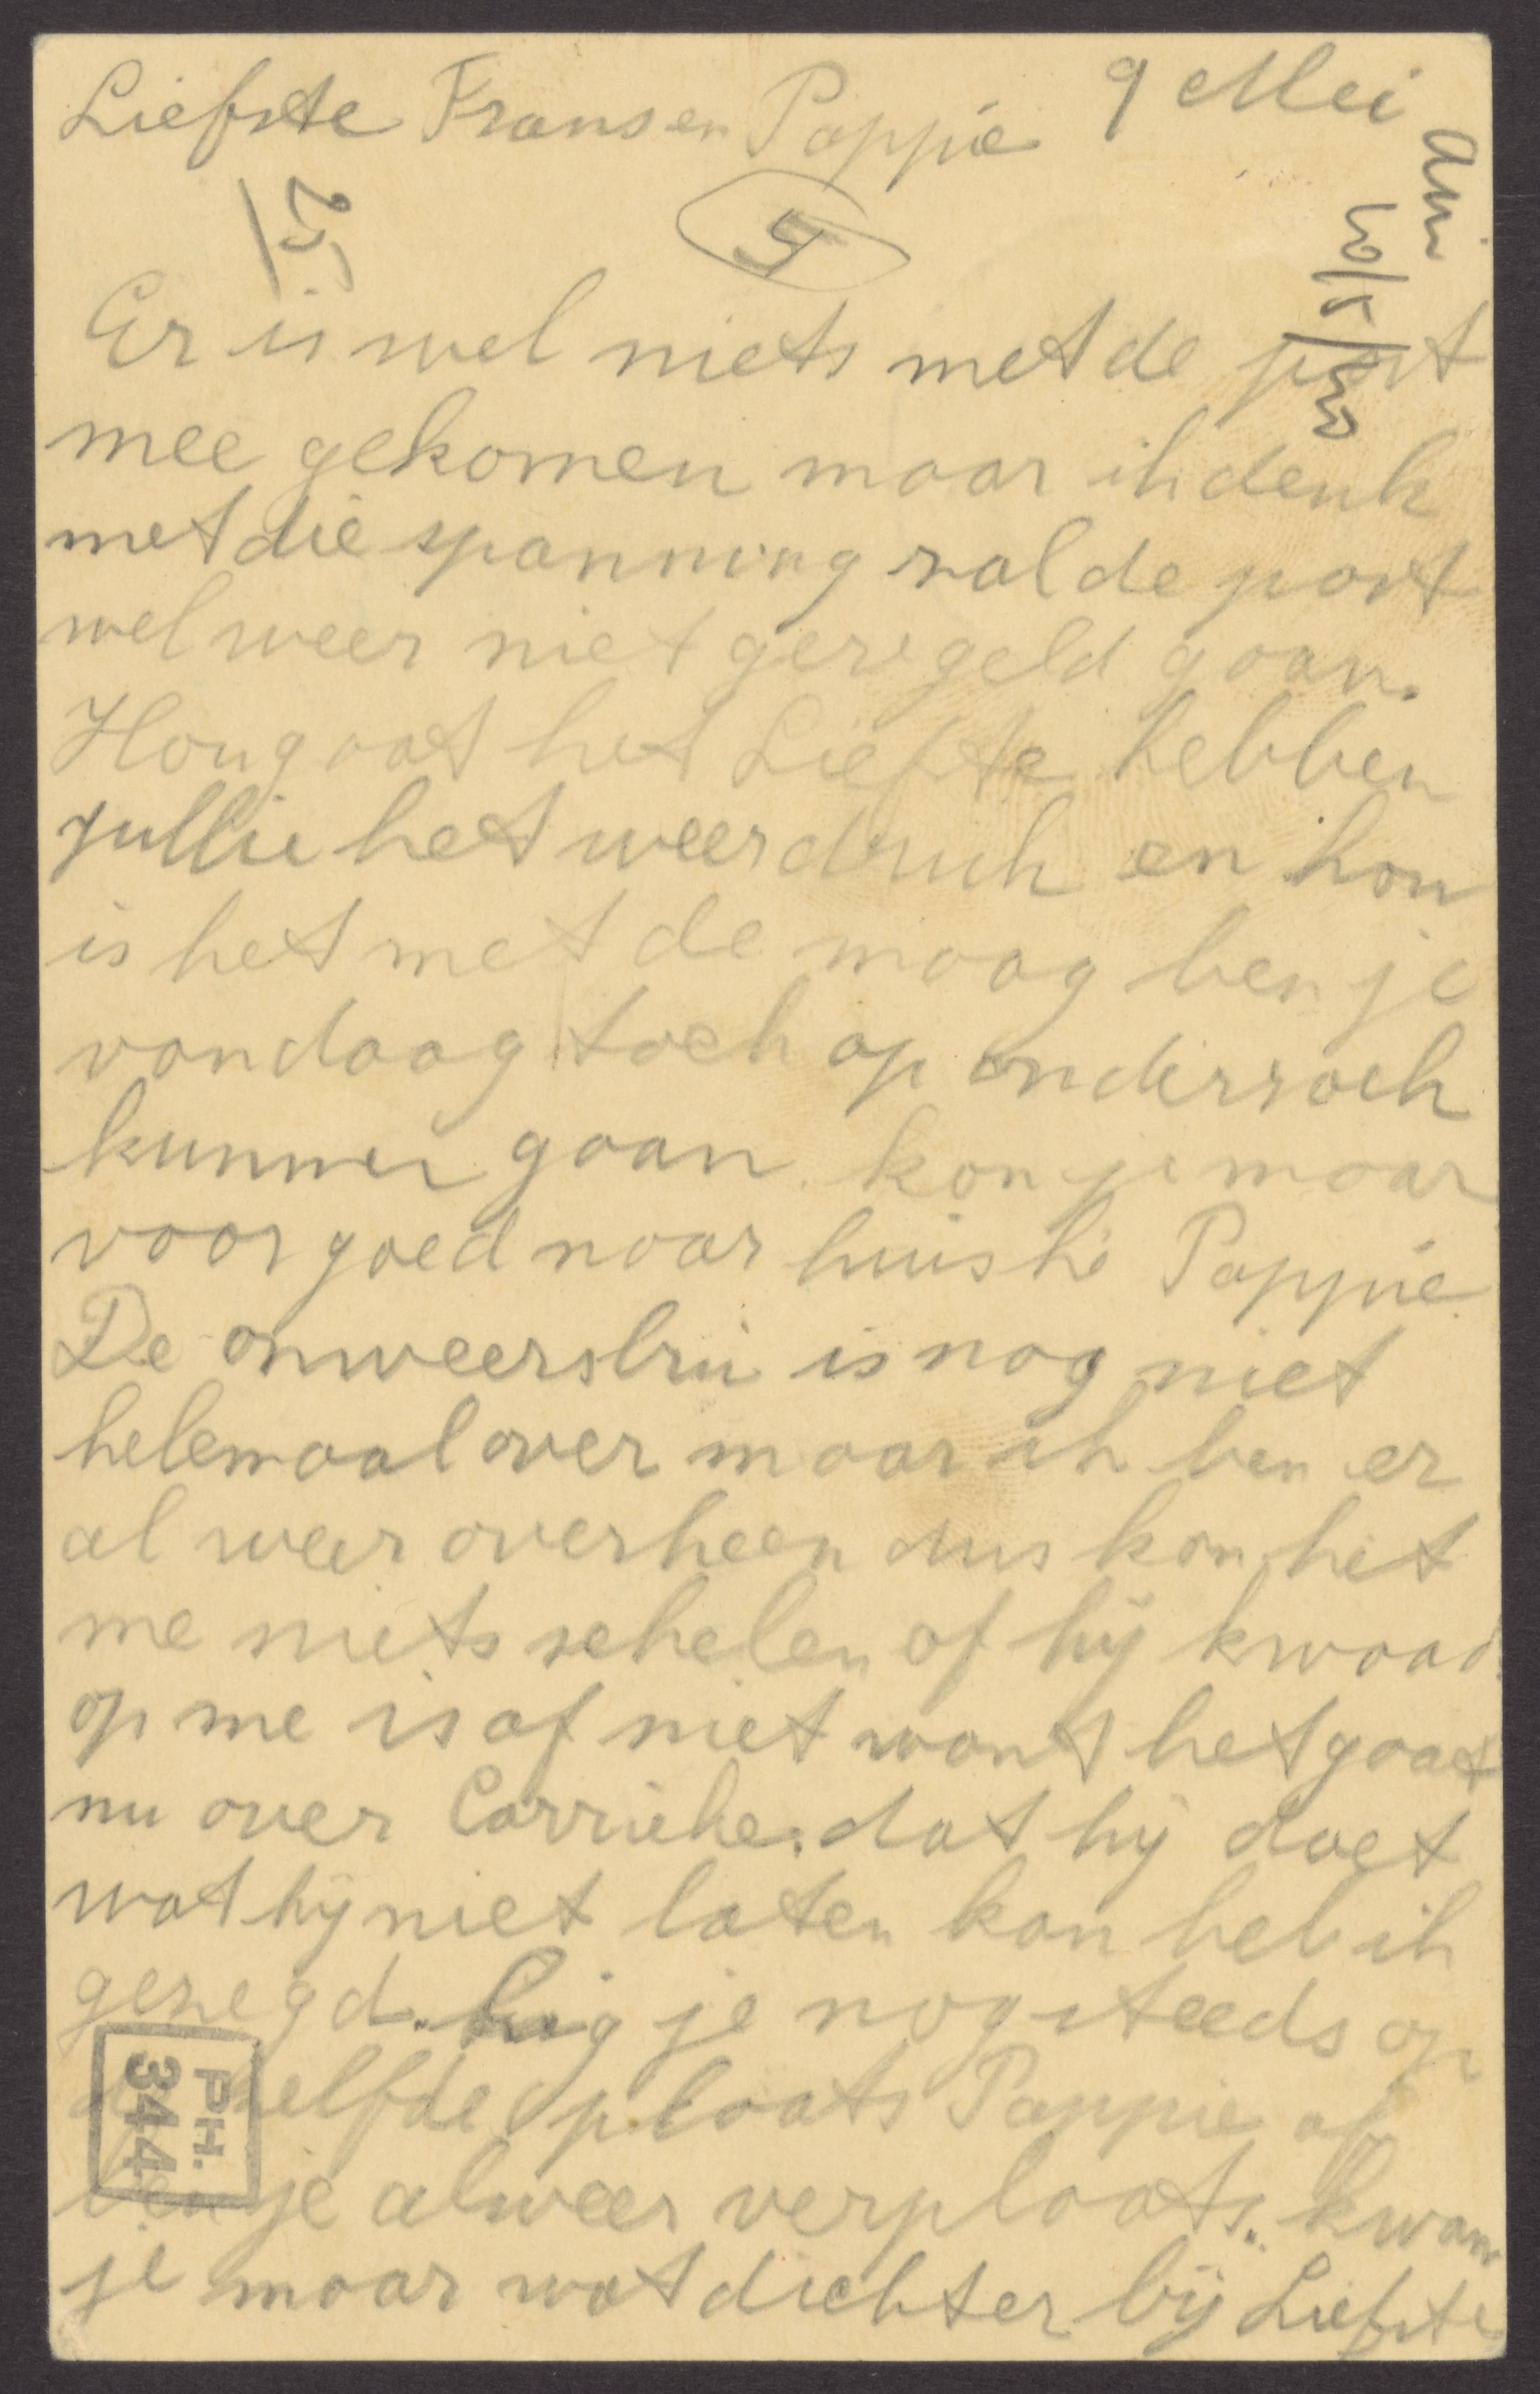 9 Mei
Liefste Frans en Pappie
Er is wel niets met de post
mee gekomen maar ik denk
met die spanning zal de post
wel weer niet geregeld gaan.
Hou gaat het Liefste hebben
jullie het weer druk en hou
is het met de maag ben je
vandaag toch op onderzoek
kunnen gaan. kon je maar
voor goed naar huis hé Pappie
De onweersbui is nog niet
helemaal over maar ik ben er
al weer overheen dus kon het
me niets schelen of hij kwaad
op me is of niet want het gaat
nu over Corrieke. dat hij doet
wat hij niet laten kan heb ik
gezegd. Lig je nog steeds op
dezelfde plaats Pappie of
ben je alweer verplaats. kwam
je maar wat dichter bij Liefste
PH.
344